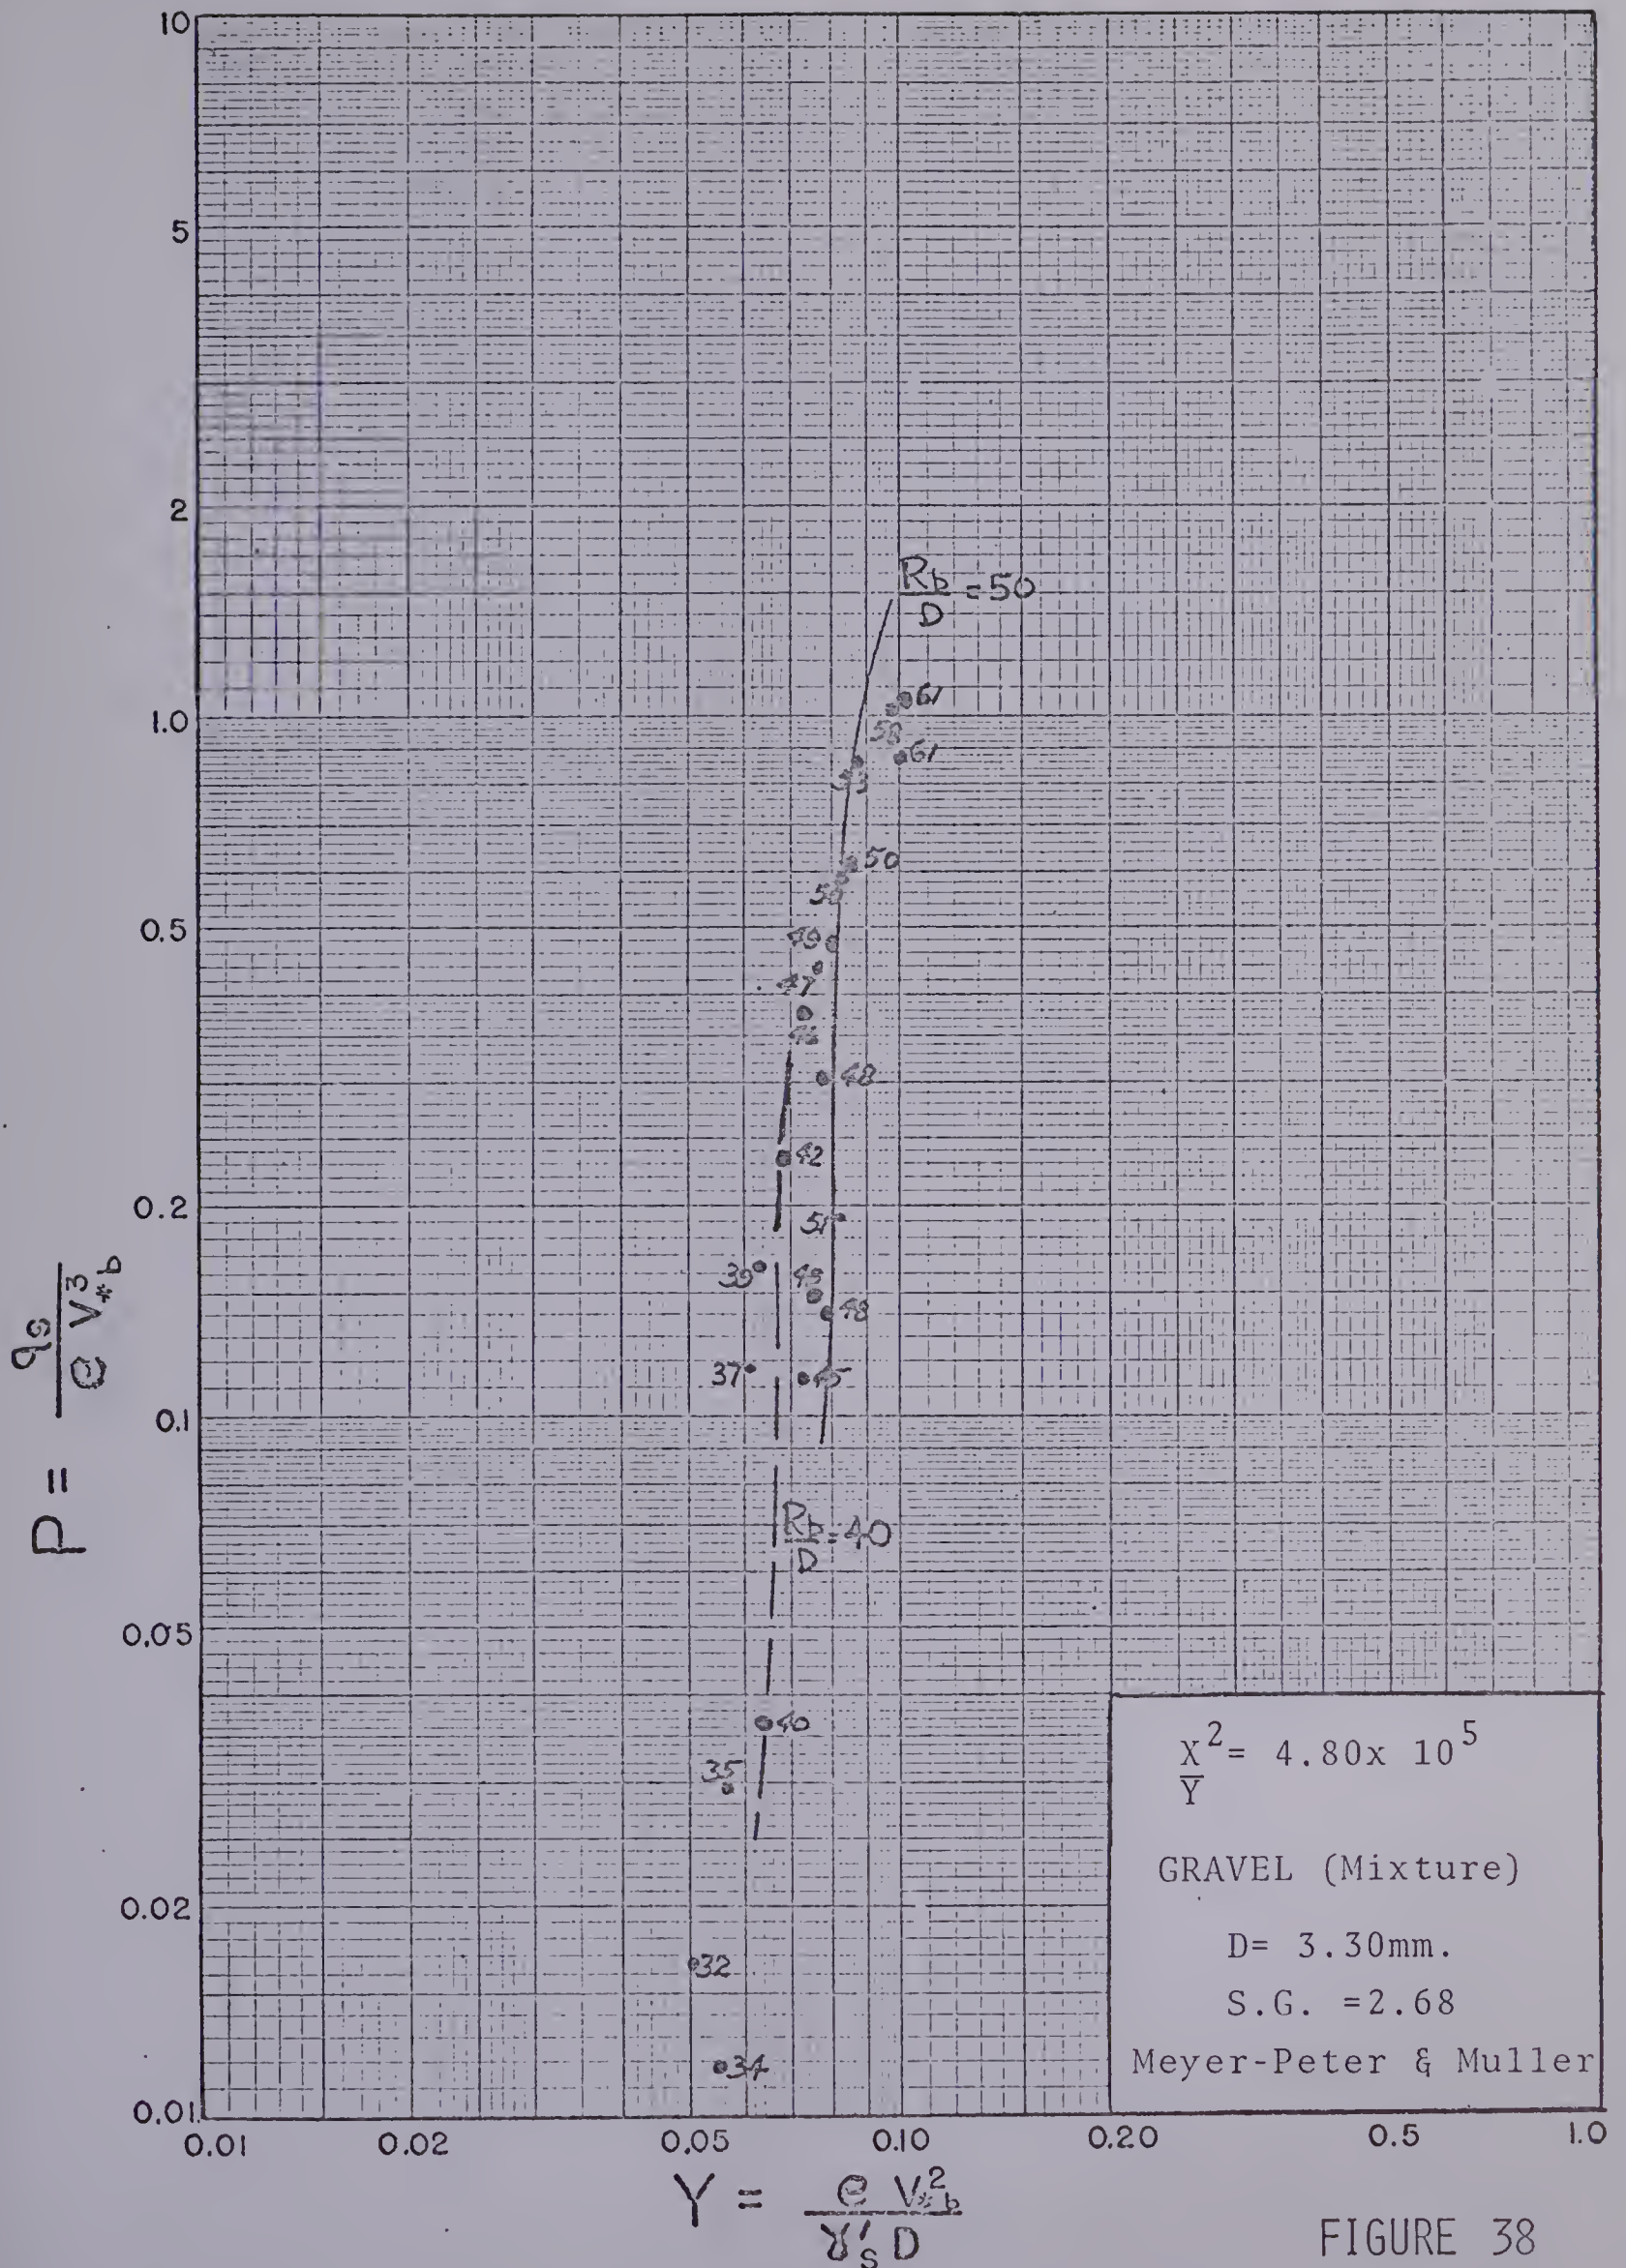 10
5
2
1.0
0.5
0.2
0.1
0.05
0.02
0.01
P = q_s / ρ V_*b^3
R_b/D = 50
61
58
61
50
50
49
47
46
48
42
51
39
49
48
37
45
R_b/D = 40
40
35
32
34
X^2/Y = 4.80x 10^5
GRAVEL (Mixture)
D= 3.30mm.
S.G. =2.68
Meyer-Peter & Muller
0.01 0.02 0.05 0.10 0.20 0.5 1.0
Y = ρ V_*b^2 / γ'_s D
FIGURE 38